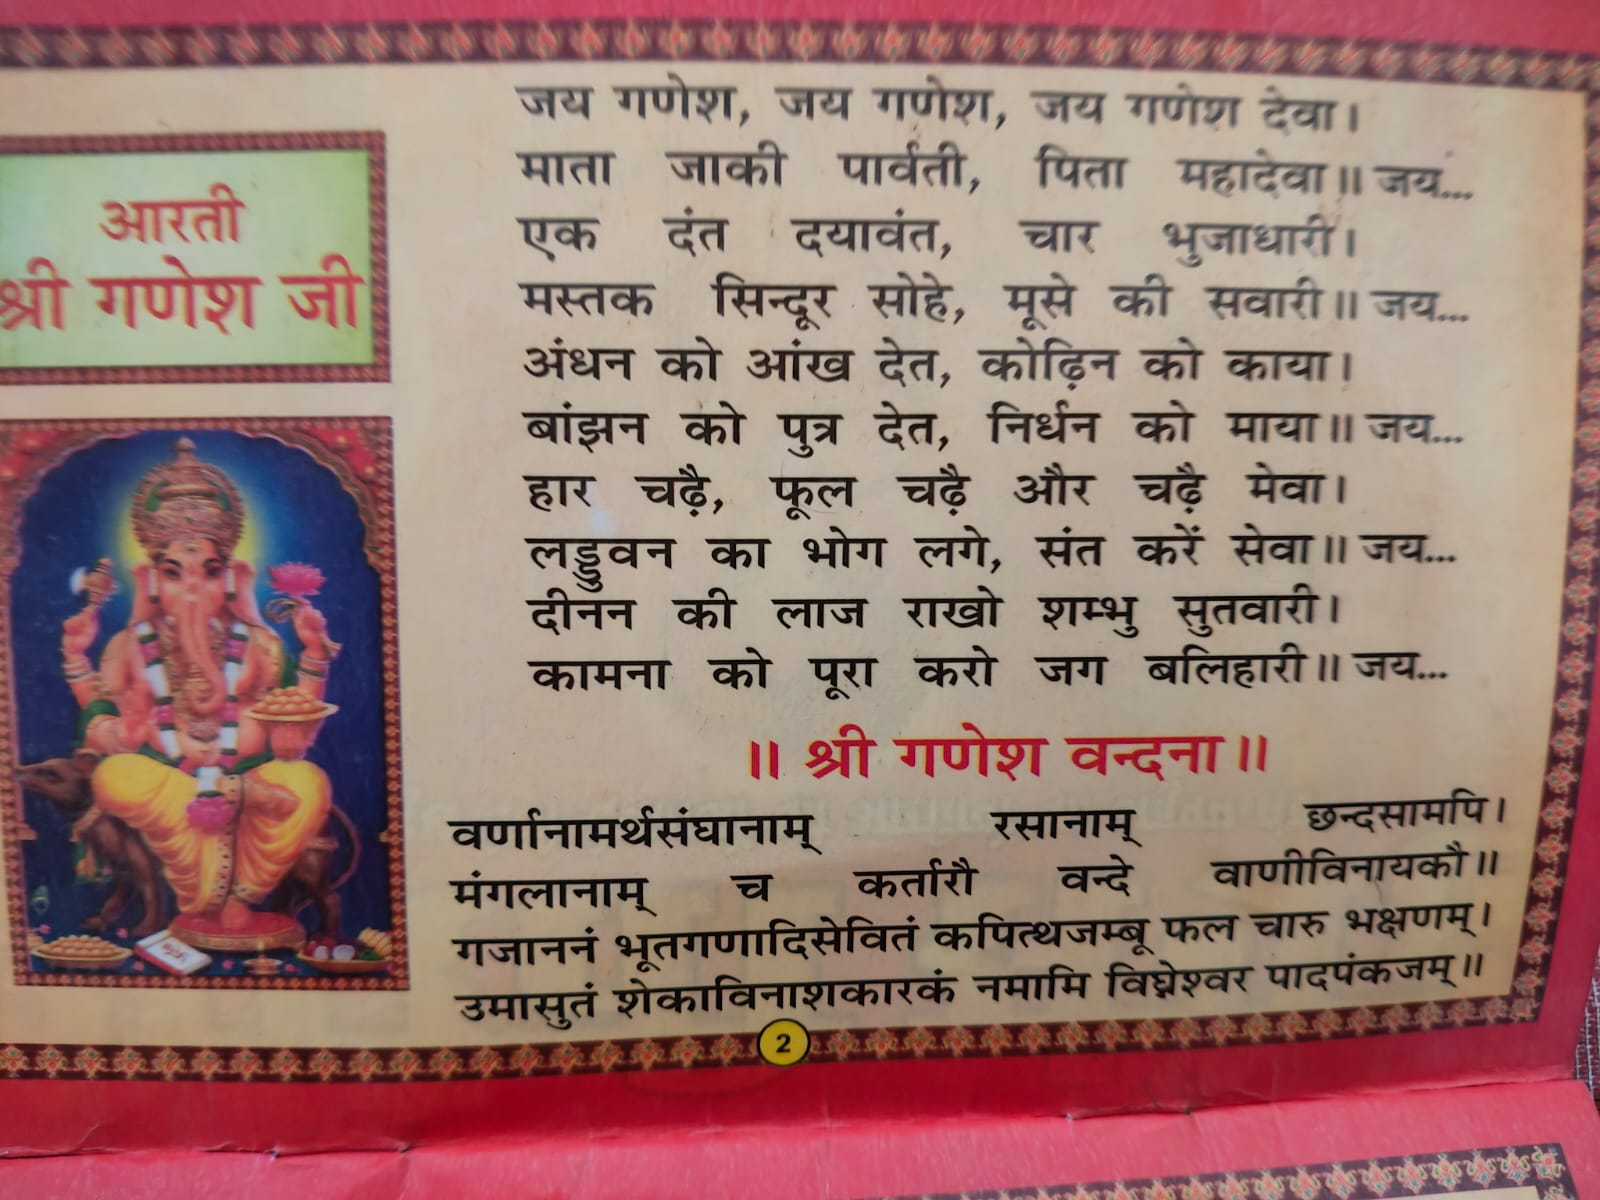 आरती
श्री गणेश जी
जय गणेश, जय गणेश, जय गणेश देवा।
माता जाकी पार्वती, पिता महादेवा॥ जय...
एक दंत दयावंत, चार भुजाधारी।
मस्तक सिन्दूर सोहे, मूसे की सवारी॥ जय...
अंधन को आंख देत, कोढ़िन को काया।
बांझन को पुत्र देत, निर्धन को माया॥ जय...
हार चढ़ै, फूल चढ़ै और चढ़ै मेवा।
लड्डुवन का भोग लगे, संत करें सेवा॥ जय...
दीनन की लाज राखो शम्भु सुतवारी।
कामना को पूरा करो जग बलिहारी॥ जय...
॥ श्री गणेश वन्दना॥
वर्णानामर्थसंघानाम् रसानाम् छन्दसामपि।
मंगलानाम् च कर्तारौ वन्दे वाणीविनायकौ॥
गजाननं भूतगणादिसेवितं कपित्थजम्बू फल चारु भक्षणम्।
उमासुतं शेकाविनाशकारकं नमामि विघ्नेश्वर पादपंकजम्॥
2